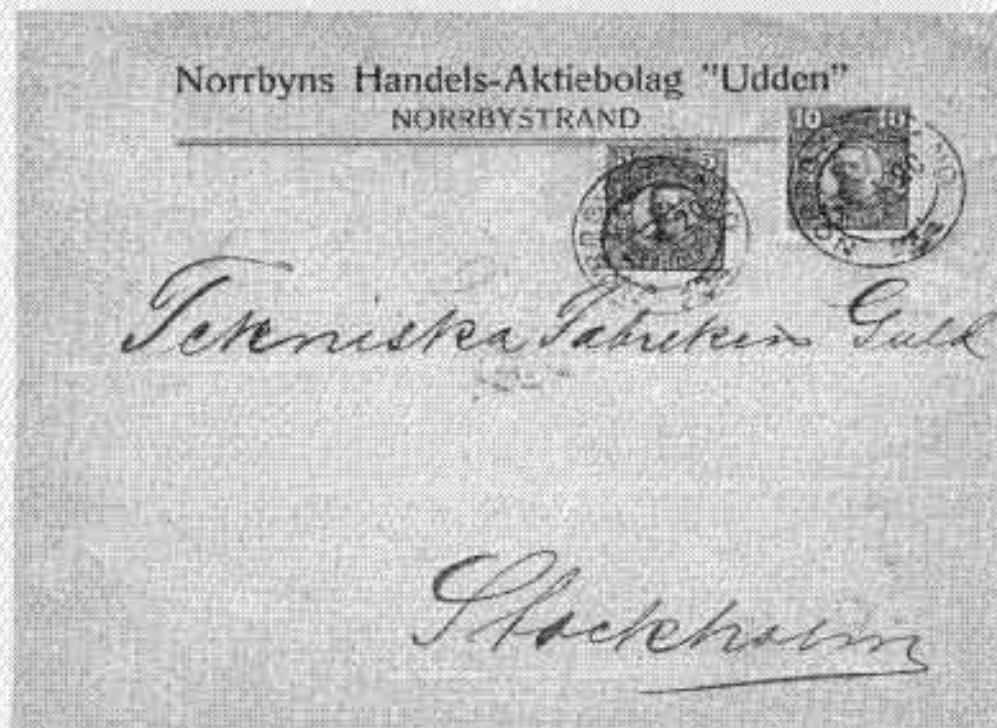 Norrbyns Handels-Aktiebolag "Udden"
NORRBYSTRAND
10 10
5 5
Tekniska Fabriken Guld
Stockholm